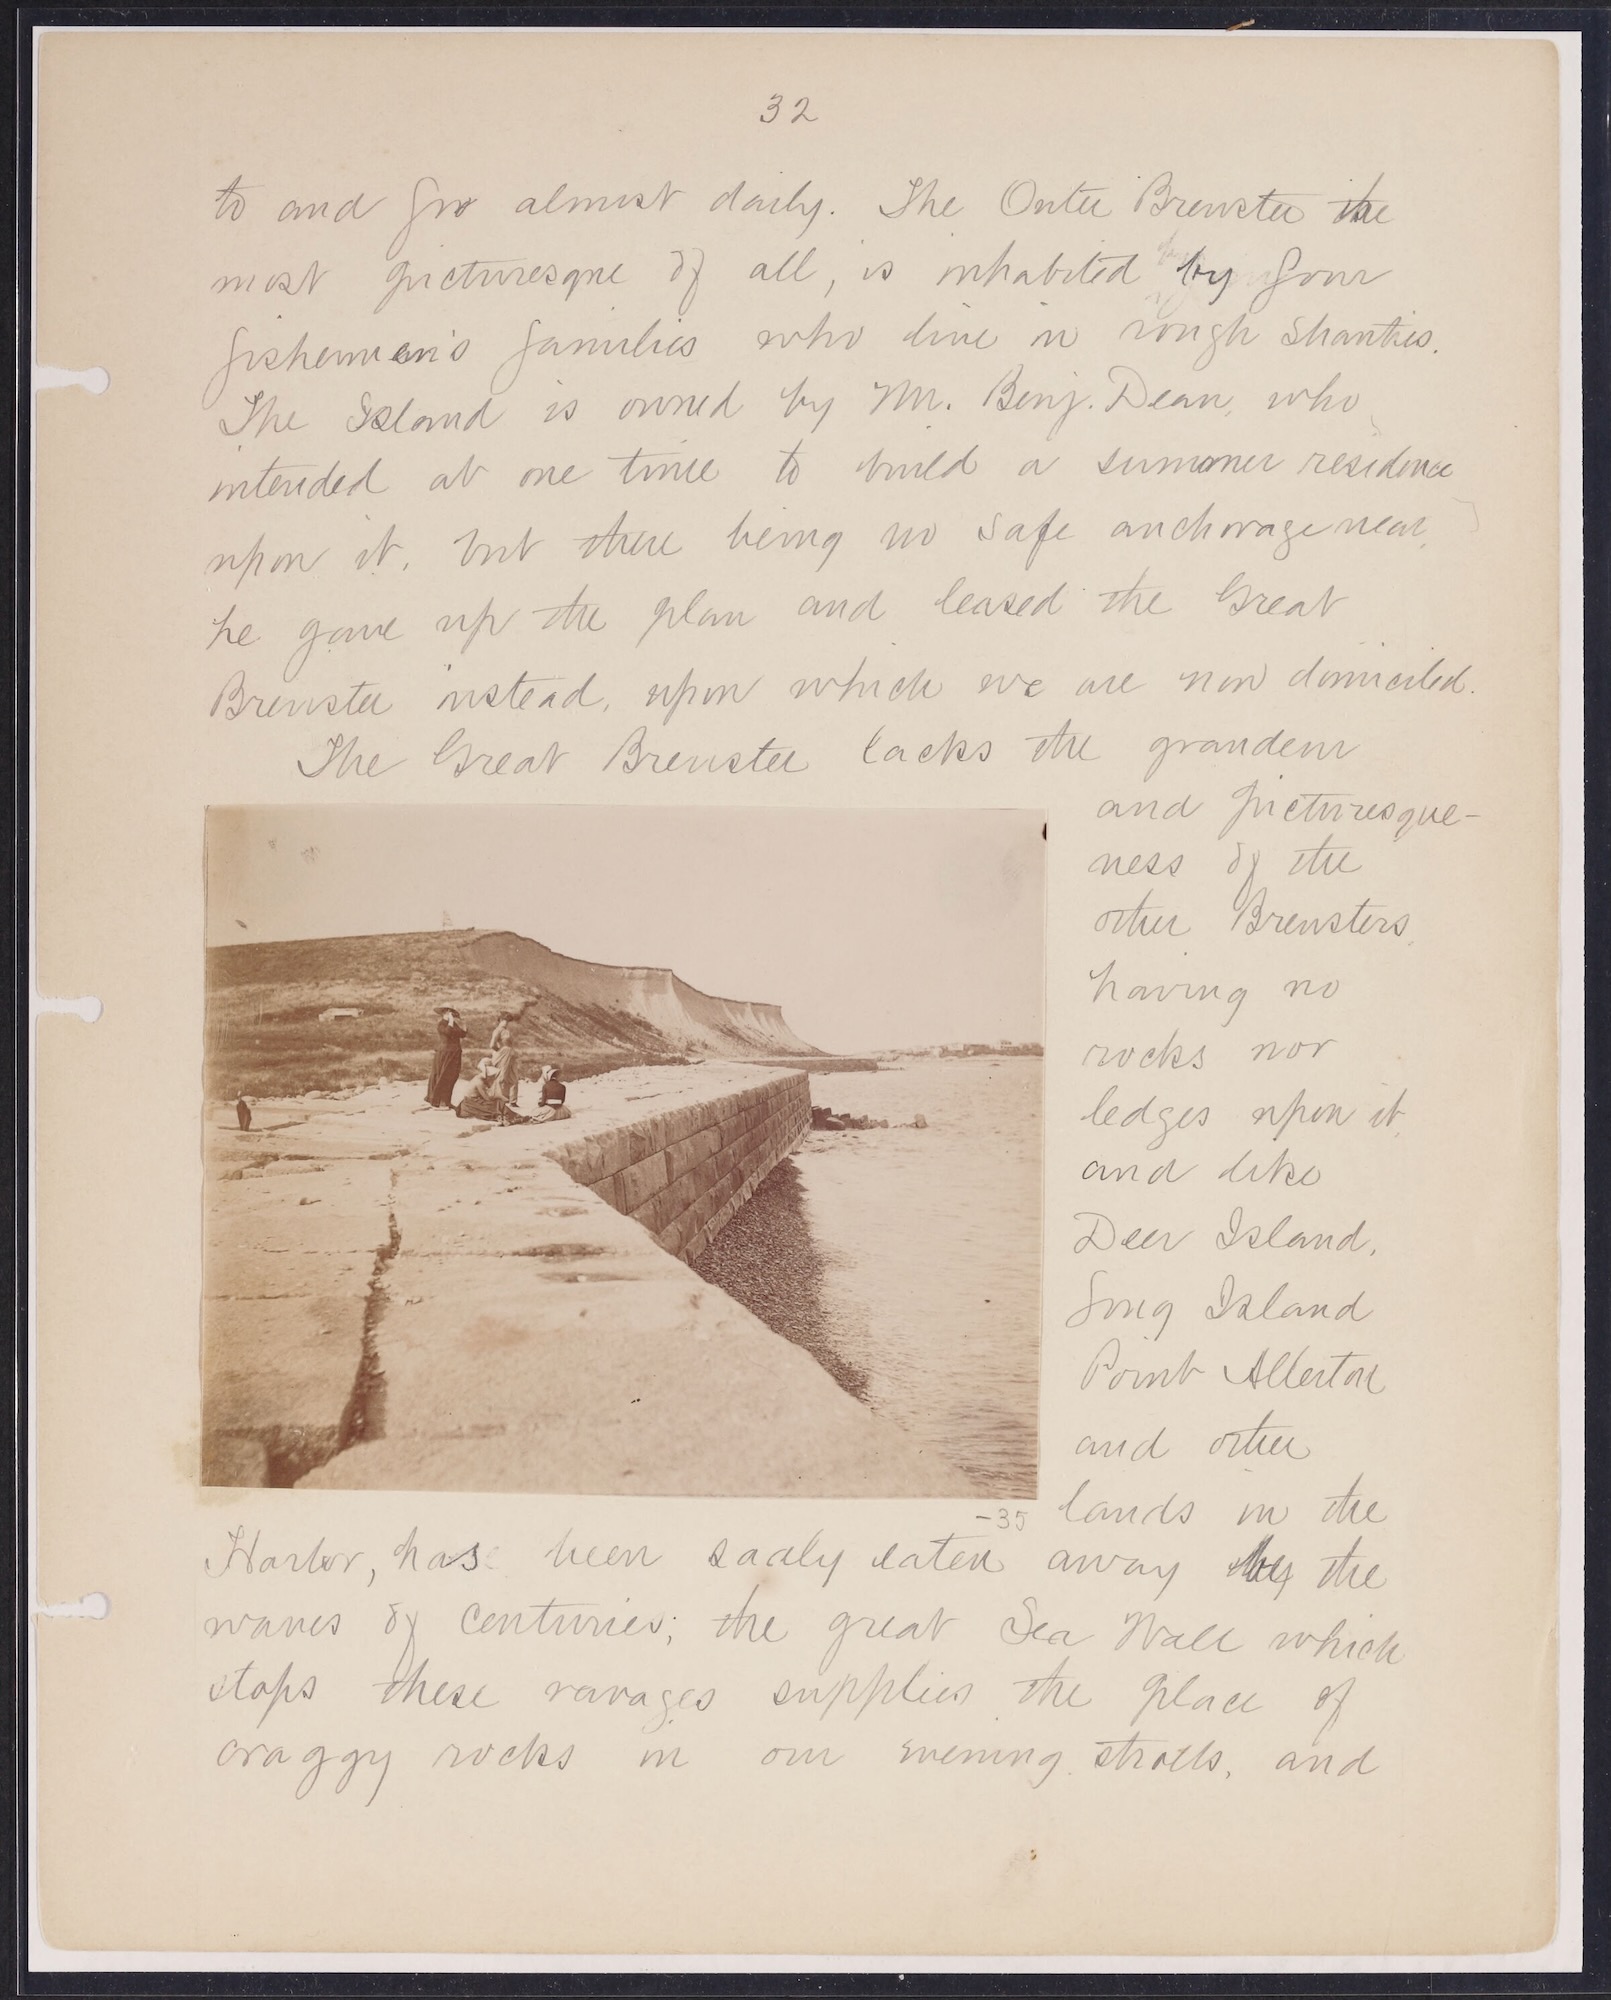 32
to and fro almost daily. The Outer Brewster the
most picturesque of all, is inhabited by four
fishermen's families who live in rough shanties.
The Island is owned by Mr. Benj. Dean, who
intended at one time to build a summer residence
upon it, but there being no safe anchorage near,
he gave up the plan and leased the Great
Brewster instead, upon which we are now domiciled.
The Great Brewster lacks the grandeur
and picturesque-
ness of the
other Brewsters,
having no
rocks nor
ledges upon it,
and like
Deer Island,
Long Island
Point Allerton
and other
lands in the
-35
Harbor, has been sadly eaten away by the
waves of centuries; the great Sea Wall which
stops these ravages supplies the place of
craggy rocks in our evening strolls, and